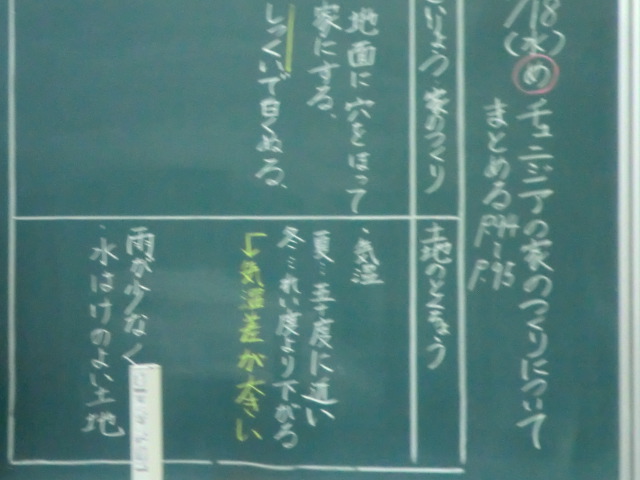 /18
(水)
め チュニジアの家のつくりについて
まとめる P.94~P.95
家のつくり
土地のとくちょう
地面に穴をほって
家にする。
しっくいで白くぬる。
・気温
夏…五十度に近い
冬…れい度より下がる
↳気温差が大きい
雨が少なく
・水はけのよい土地